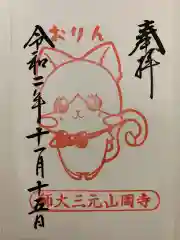 奉拝
おりん
令和二年十一月十五日
寺岡山元三大師